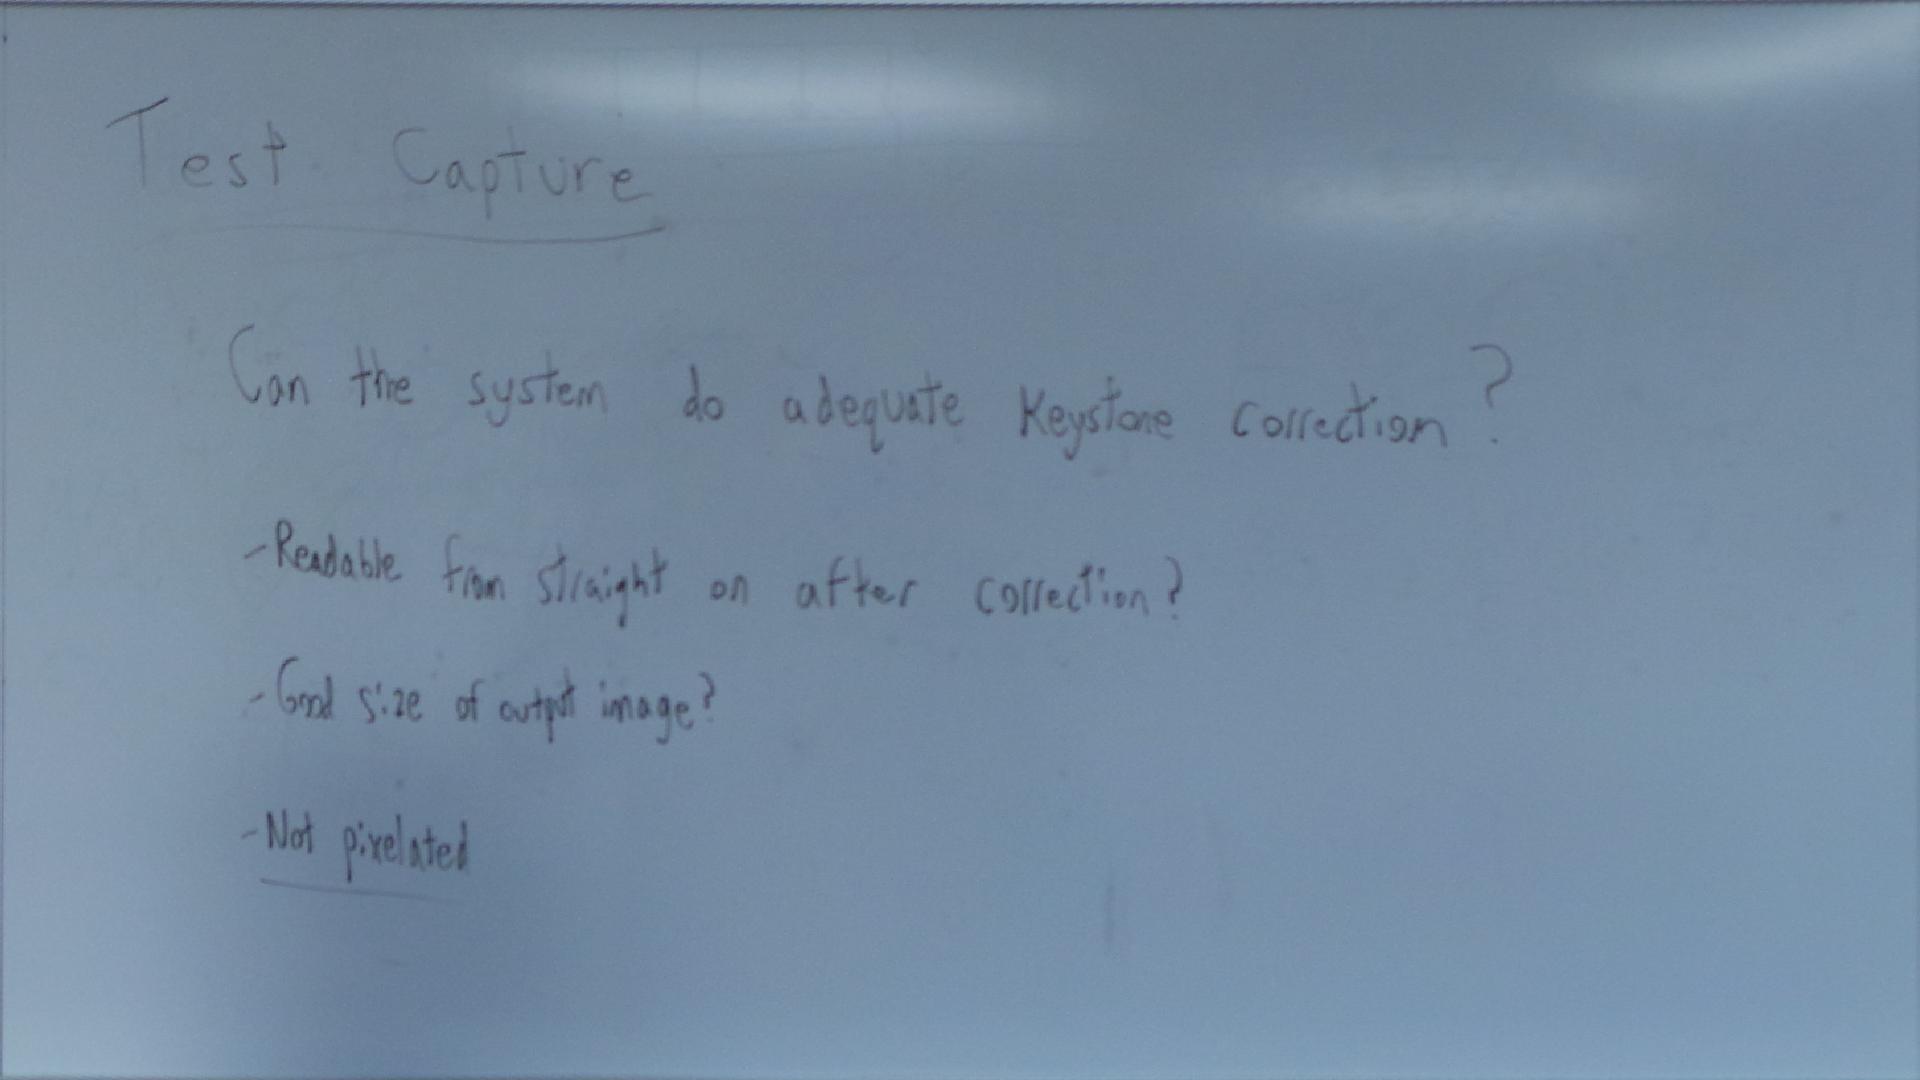 Test Capture
Can the system do adequate Keystone correction?
-Readable from straight on after correction?
-Good size of output image?
-Not pixelated